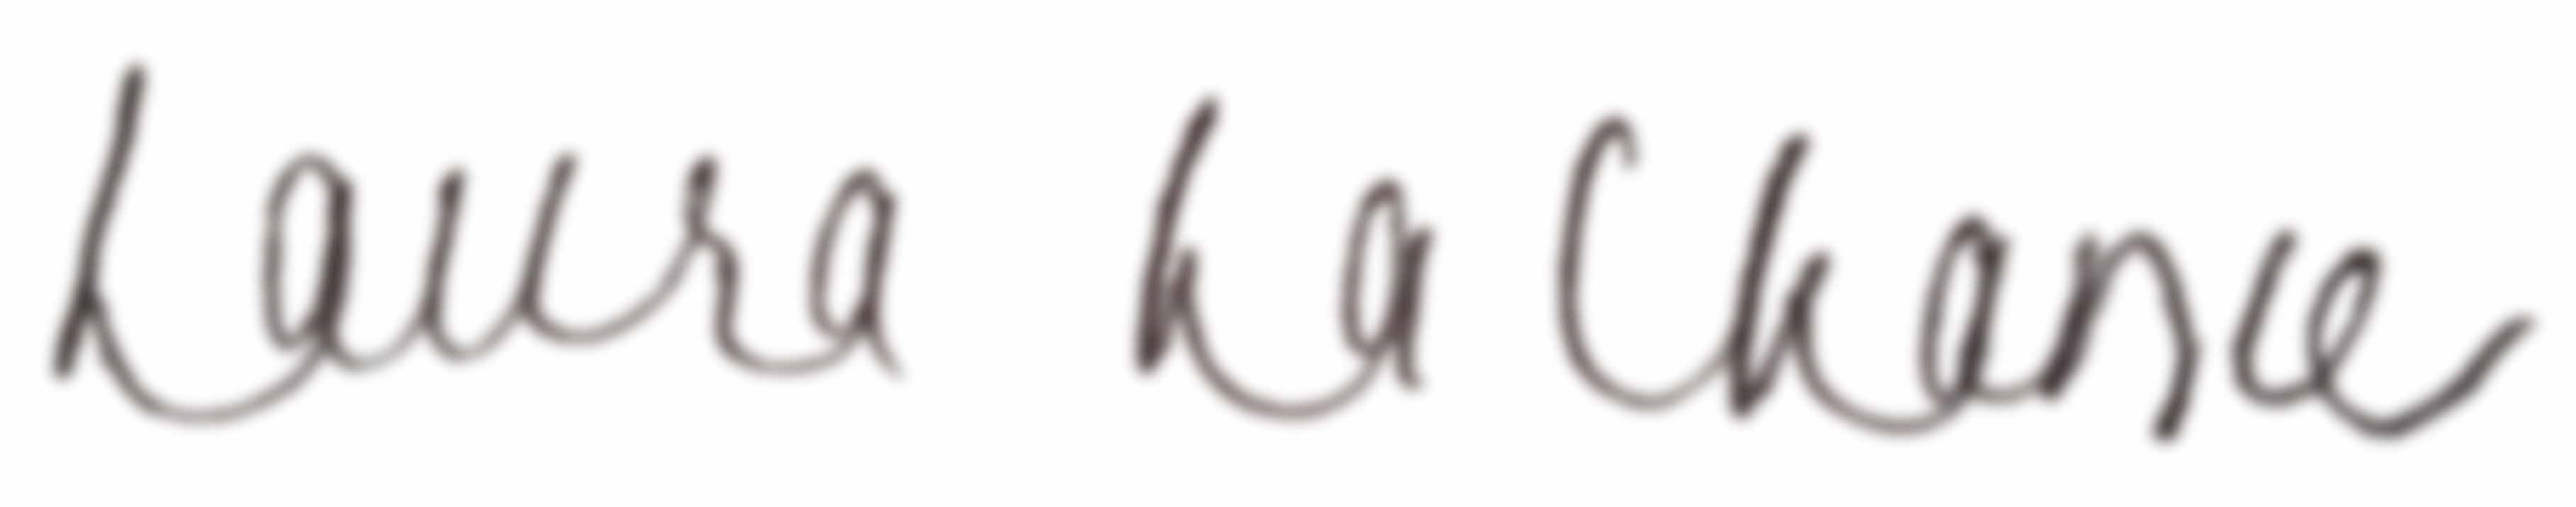 Laura La Chance